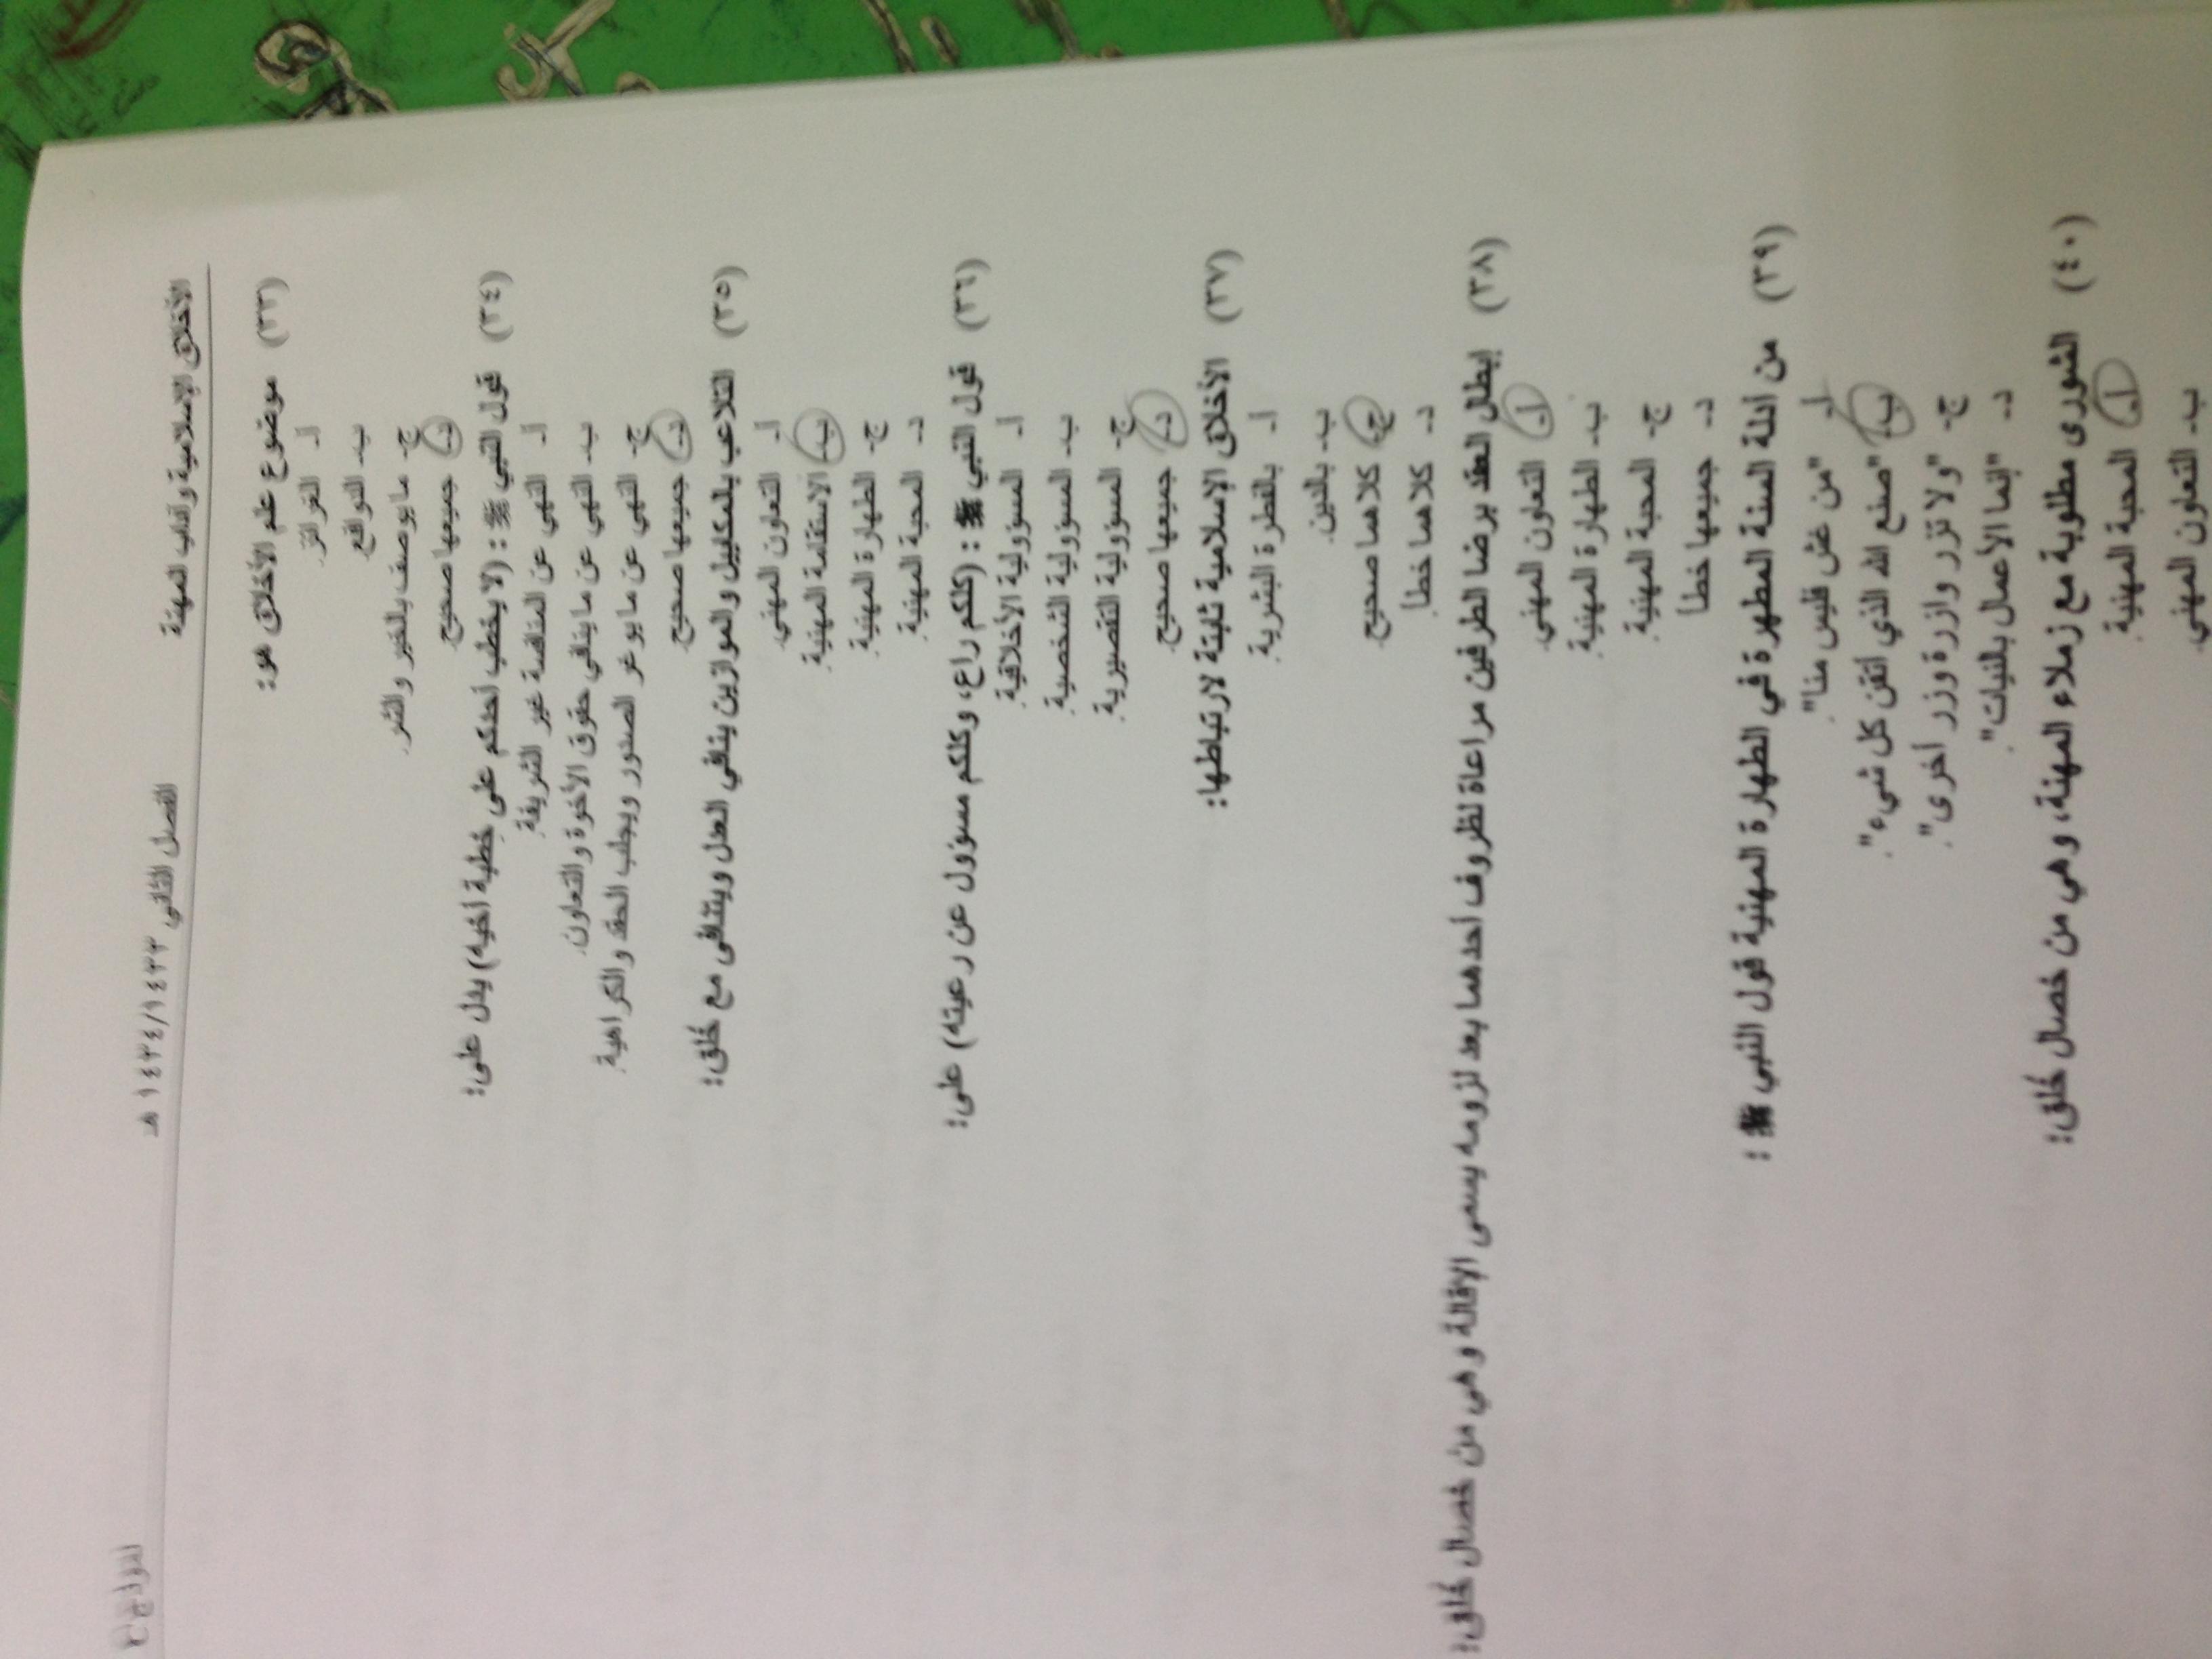 الأخلاق الإسلامية وآداب المهنة الفصل الثاني ١٤٣٤/١٤٣٣ هـ
(٣٣) موضوع علم الأخلاق هو:
أ- الغرائز.
ب- الدوافع.
ج- ما يوصف بالخير والشر.
د- جميعها صحيح.
(٣٤) قول النبي ﷺ : (لا يخطب أحدكم على خطبة أخيه) يدل على:
أ- النهي عن المنافسة غير الشريفة.
ب- النهي عن ما ينافي حقوق الأخوة والتعاون.
ج- النهي عن ما يوغر الصدور ويجلب الحقد والكراهية.
د- جميعها صحيح.
(٣٥) التلاعب بالمكاييل والموازين ينافي العدل ويتنافى مع خُلق:
أ- التعاون المهني.
ب- الاستقامة المهنية.
ج- الطهارة المهنية.
د- المحبة المهنية.
(٣٦) قول النبي ﷺ : (كلكم راع، وكلكم مسؤول عن رعيته) على:
أ- المسؤولية الأخلاقية.
ب- المسؤولية الشخصية.
ج- المسؤولية التقصيرية.
د- جميعها صحيح.
(٣٧) الأخلاق الإسلامية ثابتة لارتباطها:
أ- بالفطرة البشرية.
ب- بالدين.
ج- كلاهما صحيح.
د- كلاهما خطأ.
(٣٨) إبطال العقد برضا الطرفين مراعاة لظروف أحدهما بعد لزومه يسمى الإقالة وهي من خصال خُلق:
أ- التعاون المهني.
ب- الطهارة المهنية.
ج- المحبة المهنية.
د- جميعها خطأ
(٣٩) من أدلة السنة المطهرة في الطهارة المهنية قول النبي ﷺ :
أ- "من غش فليس منا".
ب- "صنع الله الذي أتقن كل شيء".
ج- "ولا تزر وازرة وزر أخرى".
د- "إنما الأعمال بالنيات".
(٤٠) الشورى مطلوبة مع زملاء المهنة، وهي من خصال خُلق:
أ- المحبة المهنية.
ب- التعاون المهني.